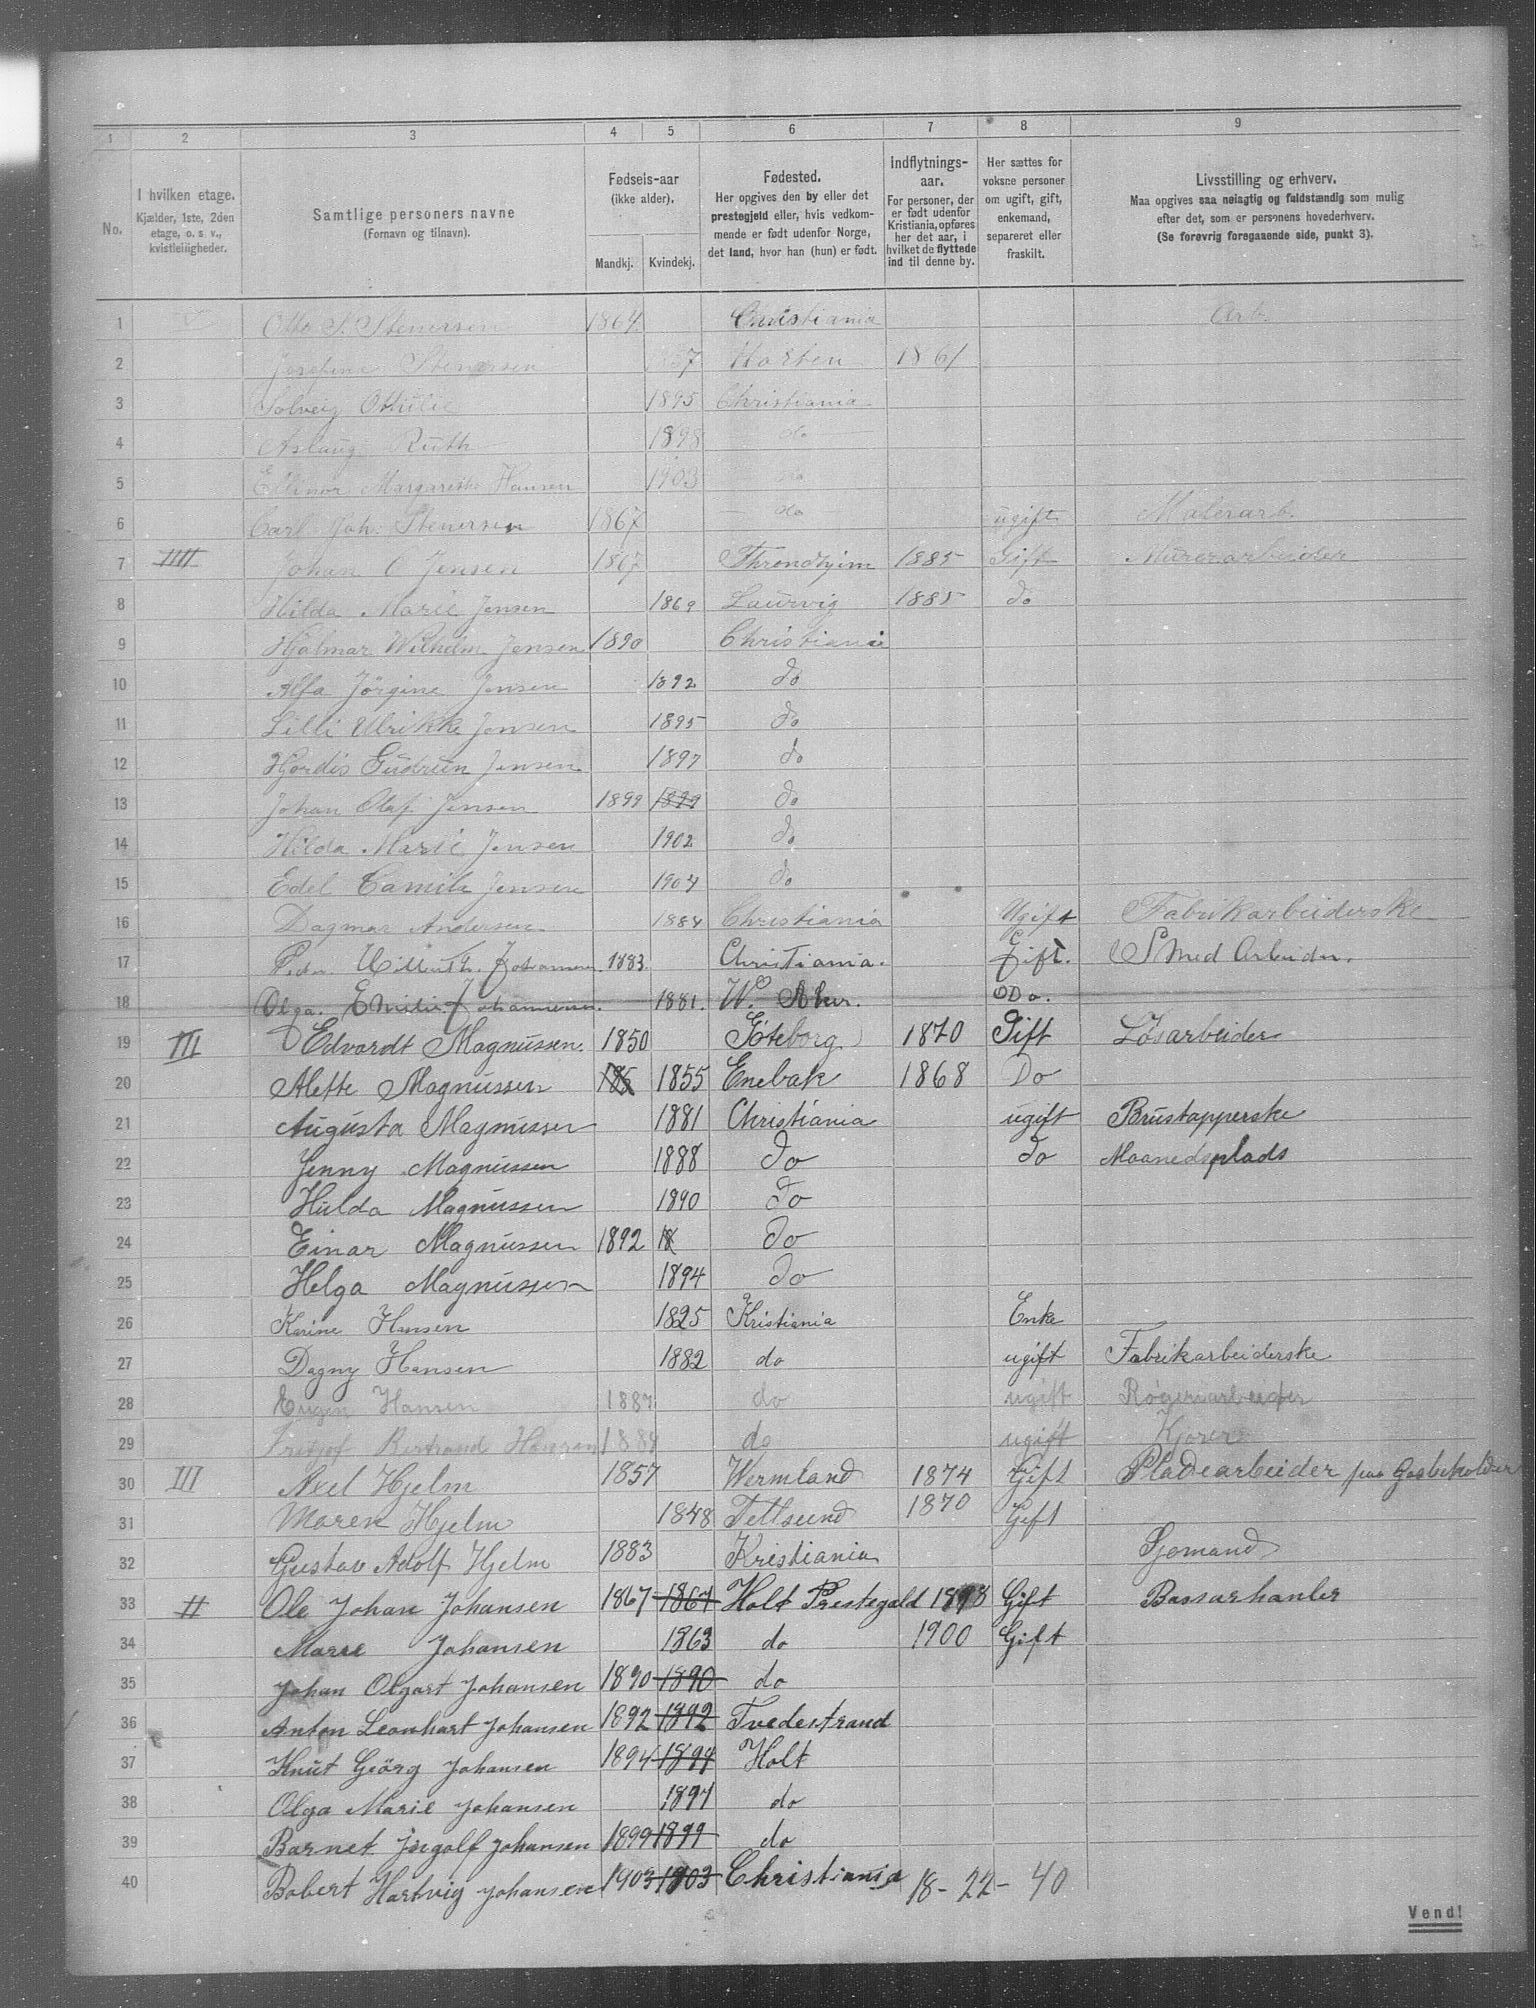 1 2 3 4 5 6 7 8 9
No.
I hvilken etage.
Kjælder, 1ste, 2den
etage, o. s. v.,
kvistleiligheder.
Samtlige personers navne
(Fornavn og tilnavn).
Fødsels-aar
(ikke alder).
Mandkj. Kvindekj.
Fødested.
Her opgives den by eller det
prestegjeld eller, hvis vedkom-
mende er født udenfor Norge,
det land, hvor han (hun) er født.
Indflytnings-
aar.
For personer, der
er født udenfor
Kristiania, opføres
her det aar, i
hvilket de flyttede
ind til denne by.
Her sættes for
voksne personer
om ugift, gift,
enkemand,
separeret eller
fraskilt.
Livsstilling og erhverv.
Maa opgives saa nøiagtig og fuldstændig som mulig
efter det, som er personens hovederhverv.
(Se forøvrig foregaaende side, punkt 3).
1 Otto S. Stenersen 1864 Christiania Arb.
2 Josefine Stenersen Horten 1861
3 Solveig Othilie 1895 Christiania
4 Aslaug Ruth 1898 do
5 Ellinor Margarethe Hansen 1903 do
6 Carl Joh. Stenersen 1867 do ugift Malerarb.
7 IIII Johan O Jensen 1867 Throndhjem 1885 Gift Murerarbeider
8 Hilda Marie Jensen 1869 Laurvig 1885 do
9 Hjalmar Wilhelm Jensen 1890 Christiania
10 Alfa Jörgine Jensen 1892 do
11 Lilli Ulrikke Jensen 1895 do
12 Hjordis Gudrun Jensen 1897 do
13 Johan Olaf Jensen 1899 1899 do
14 Hilda Marie Jensen 1902 do
15 Edel Camila Jensen 1904 do
16 Dagmar Andersen 1884 Christiania Ugift Fabrikarbeiderske
17 Johannesen. 1883. Christiania. Gift. Smed Arbeider.
18 Olga. Emilie. Johannesen. 1881. W. Aker. Do.
19 III Edvardt Magnussen. 1850 Göteborg 1870 Gift Løsarbeider
20 Alette Magnussen 185 1855 Enebak 1868 Do
21 Augusta Magnussen 1881 Christiania ugift Brustapperske
22 Jenny Magnussen 1888 Do do Maanedsplads
23 Hulda Magnussen 1890 Do
24 Einar Magnussen 1892 18 Do
25 Helga Magnussen 1894 Do
26 Karine Hansen 1825 Kristiania Enke
27 Dagny Hansen 1882 do ugift Fabrikarbeiderske
28 Eugen Hansen 1887 do ugift
29 Bertrand Hansen do ugift Kjører
30 III Axel Hjelm 1857 Wermland 1874 Gift Pladearbeider paa Gasbeholder
31 Maren Hjelm 1848 Fettsund 1870 Gift
32 Gustav Adolf Hjelm 1883 Kristiania Sjomand
33 II Ole Johan Johansen 1867 1867 Holt Prestegald 1898 Gift Bassarhanler
34 Marie Johansen 1863 do 1900 Gift
35 Johan Olgart Johansen 1890 1890 do
36 Anton Leonhart Johansen 1892 1892 Tvedestrand
37 Knut Giörg Johansen 1894 1894 Holt
38 Olga Marie Johansen 1897 do
39 Barnet Ingolf Johansen 1899 1899 do
40 Robert Hartvig Johansen 1903 1903 Christiania 18-22-40
Vend!